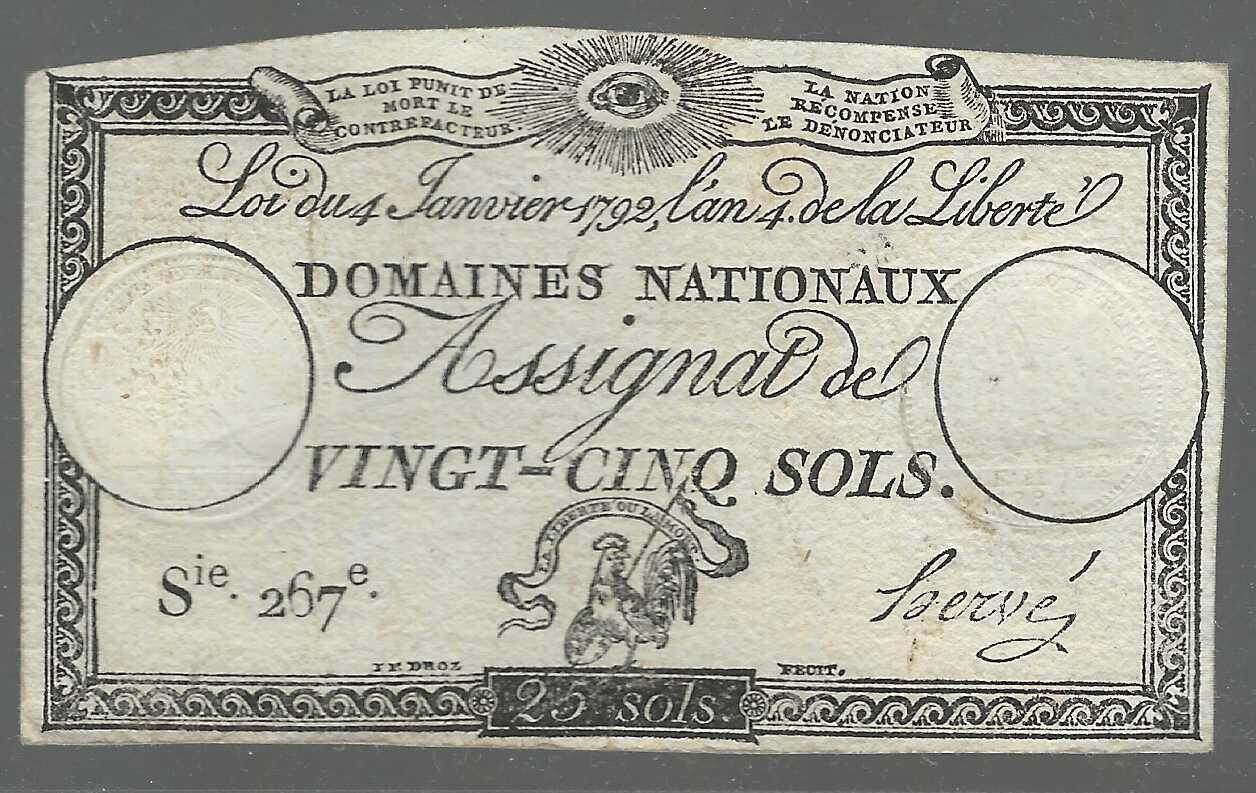 LA LOI PUNIT DE
MORT LE
CONTREFACTEUR.
LA NATION
RECOMPENSE
LE DENONCIATEUR
Loi du 4 Janvier 1792, l'an 4. de la Liberté
DOMAINES NATIONAUX
Assignat de
VINGT-CINQ SOLS.
LA LIBERTÉ OU LA MORT.
Sie. 267e.
Hervé
JP. DROZ
FECIT.
25 sols.